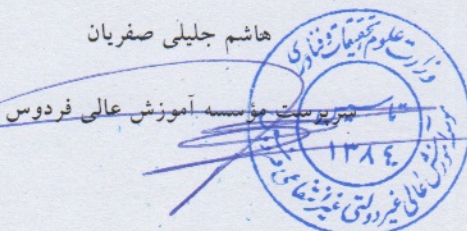 هاشم جلیلی صفریان
سرپرست مؤسسه آموزش عالی فردوس
وزارت علوم تحقیقات و فناوری
تاسیس
۱۳۸۴
آموزش عالی غیردولتی غیرانتفاعی